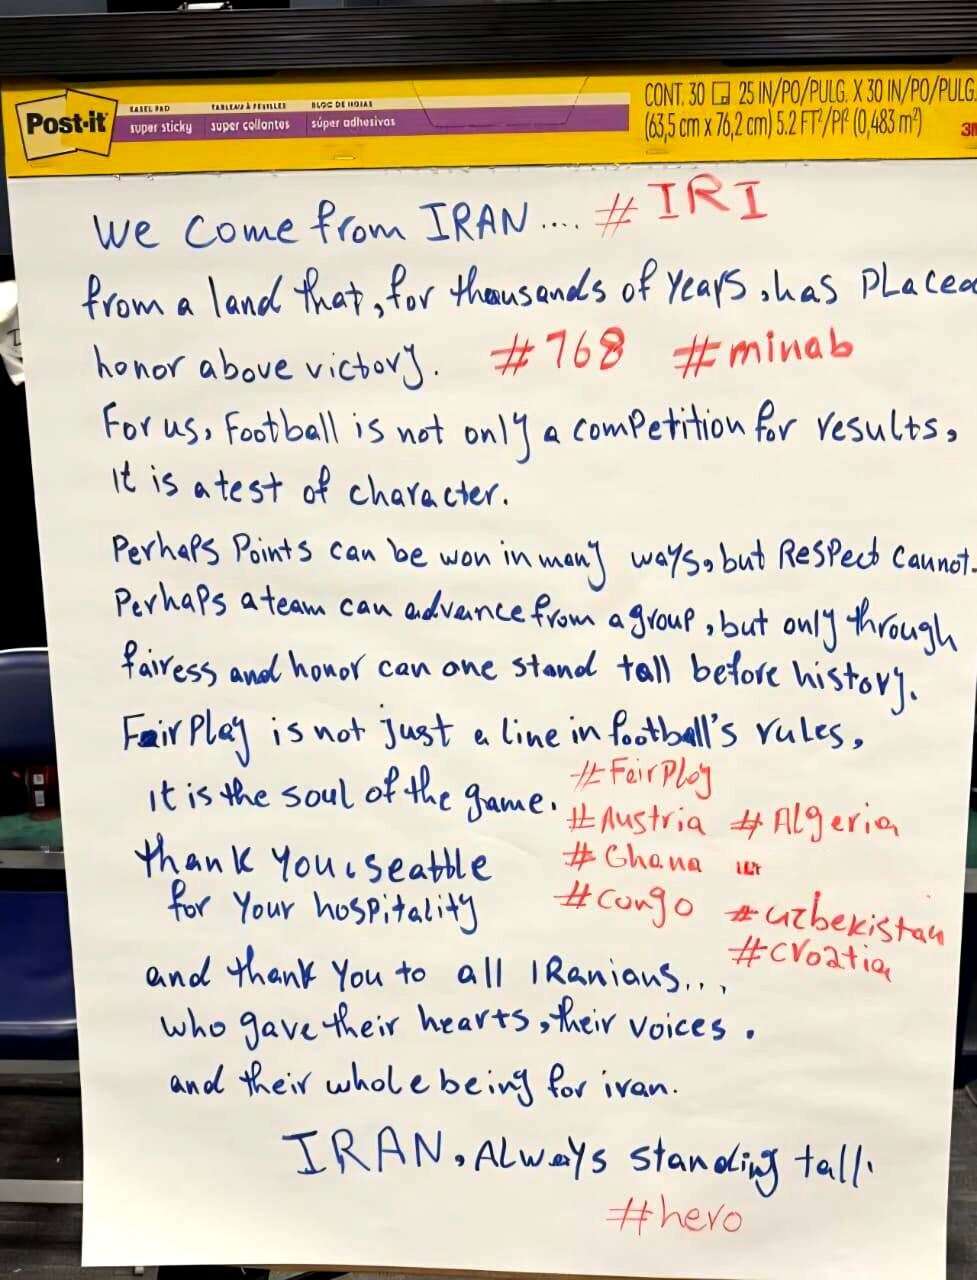 Post-it
EASEL PAD TABLEAU À FEUILLES BLOC DE HOJAS
super sticky super collantes súper adhesivas
CONT. 30 25 IN/PO/PULG. X 30 IN/PO/PULG.
(63,5 cm x 76,2 cm) 5.2 FT²/PI² (0,483 m²)
3M
We come from IRAN .... #IRI
from a land that, for thousands of years, has placed
honor above victory. #768 #minab
For us, Football is not only a competition for results,
it is a test of character.
Perhaps Points can be won in many ways, but Respect cannot.
Perhaps a team can advance from a group, but only through
fairess and honor can one stand tall before history.
Fair Play is not just a line in football's rules,
it is the soul of the game. #FairPlay
#Austria #Algeria
thank you, seattle #Ghana
for Your hospitality #congo #uzbekistan
#croatia
and thank You to all IRanians...
who gave their hearts, their voices.
and their whole being for iran.
IRAN, Always standing tall.
#hero